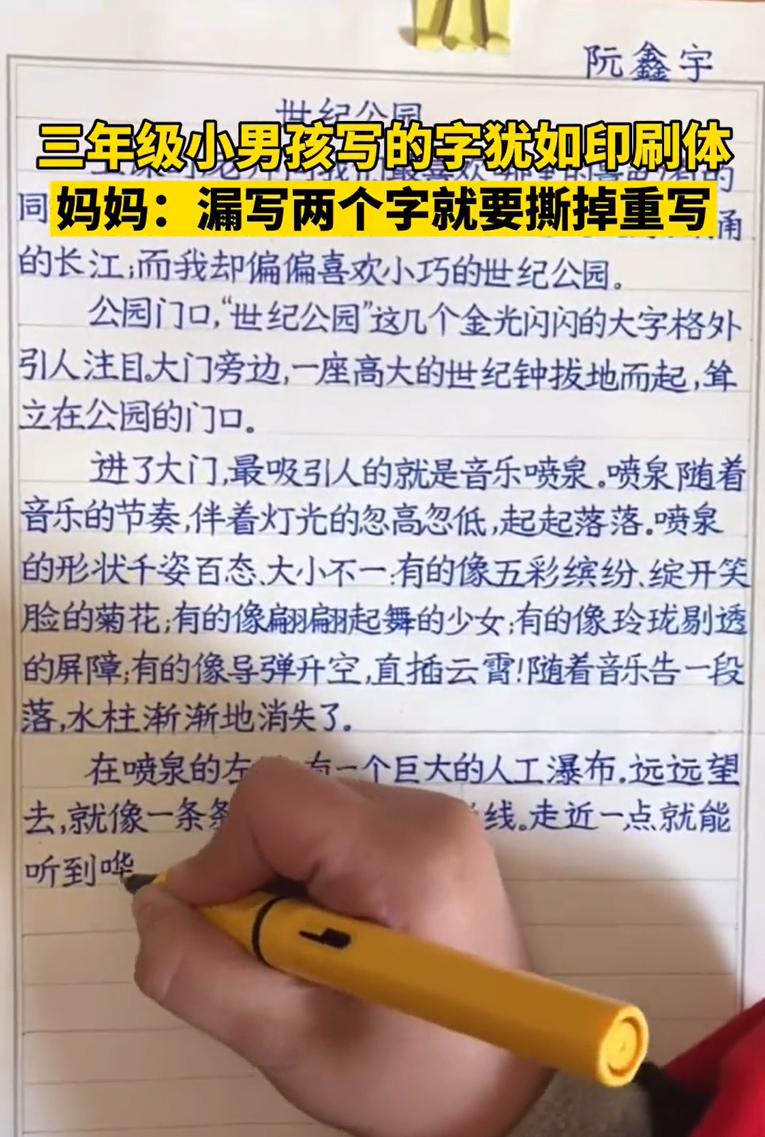 阮鑫宇
世纪公园
三年级小男孩写的字犹如印刷体
的
同
妈妈：漏写两个字就要撕掉重写
涌
的长江;而我却偏偏喜欢小巧的世纪公园。
公园门口,“世纪公园”这几个金光闪闪的大字格外
引人注目。大门旁边,一座高大的世纪钟拔地而起,耸
立在公园的门口。
进了大门,最吸引人的就是音乐喷泉。喷泉随着
音乐的节奏,伴着灯光的忽高忽低,起起落落。喷泉
的形状千姿百态、大小不一:有的像五彩缤纷、绽开笑
脸的菊花;有的像翩翩起舞的少女;有的像玲珑剔透
的屏障;有的像导弹升空,直插云霄!随着音乐告一段
落,水柱渐渐地消失了。
在喷泉的左 有一个巨大的人工瀑布。远远望
去,就像一条条 线。走近一点就能
听到哗